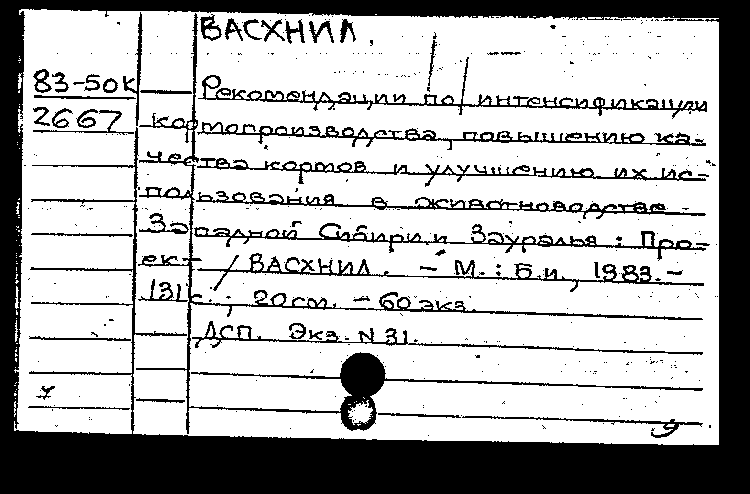 ВАСХНИЛ.
83-50К Рекомендации по интенсификации
2667 кормопроизводства, повышению ка-
чества кормов и улучшению их ис-
пользования в животноводстве
Западной Сибири и Зауралья : Про-
ект / ВАСХНИЛ. - М. : Б.и., 1983. -
131 с. ; 20 см. - 60 экз.
ДСП. Экз. N 31.